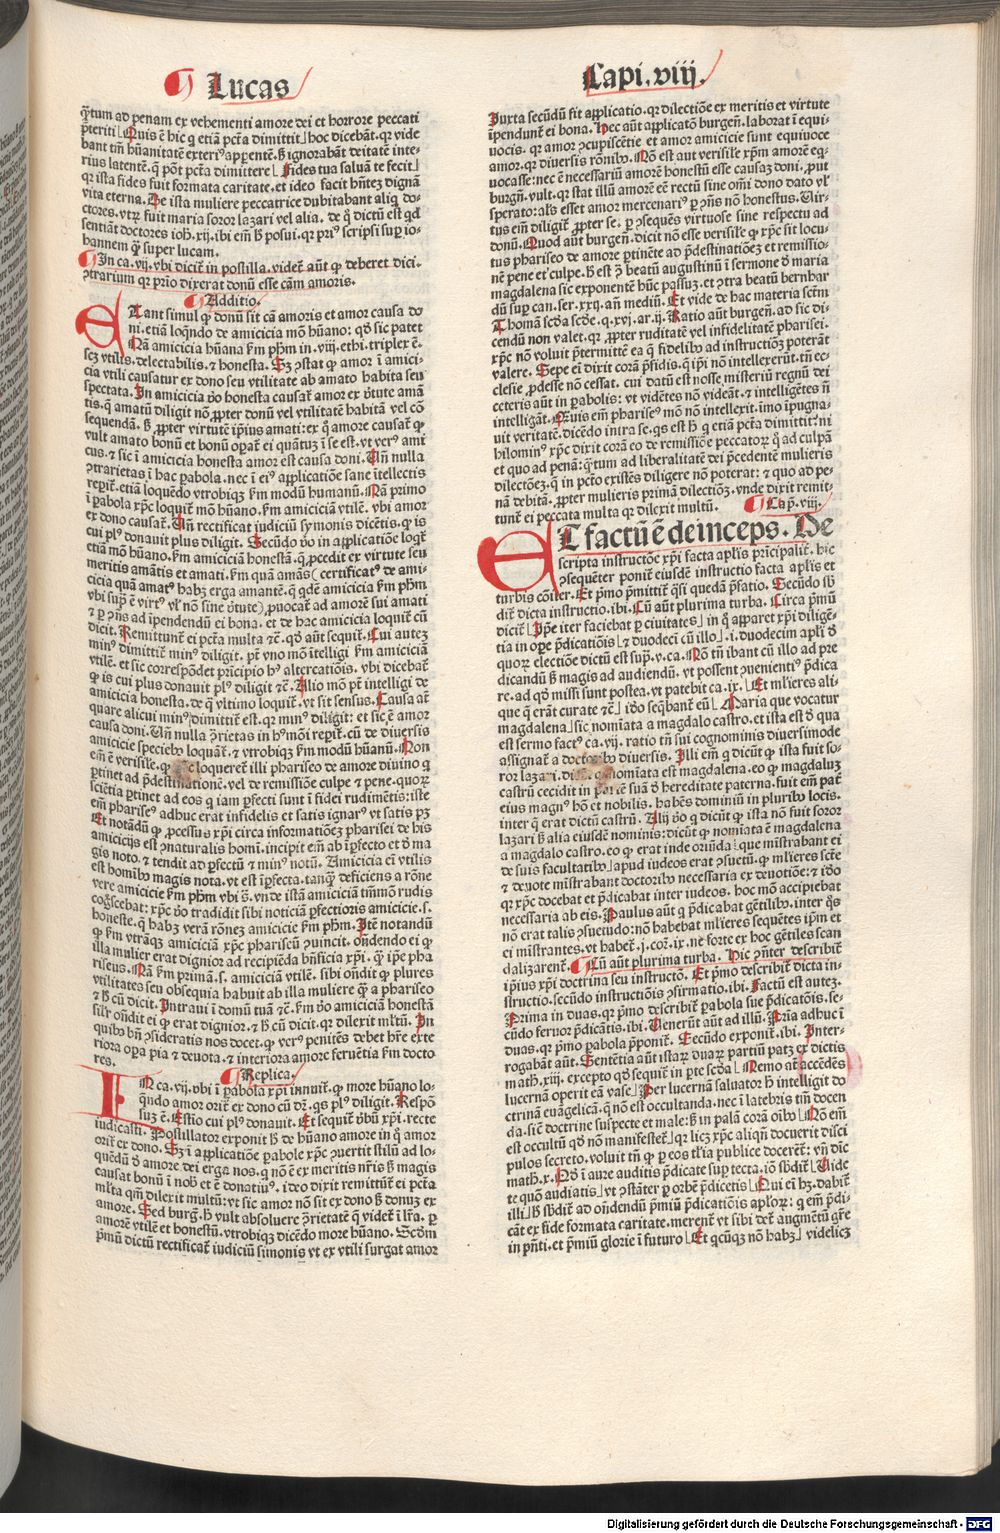 Lucas
Capi. viij.
q̄tum ad penam ex vehementi amore dei et horrore peccati
p̄teriti Quis ē hic q etiā pctā dimittit hoc dicebāt. qꝛ vide
bant tm̄ hūanitatē exteriꝰ apparentē. ß ignorabāt deitatē inte-
rius latentē. q̄ pōt pctā dimittere Fides tua saluā te fecit
qꝛ ista fides fuit formata caritate. et ideo facit hn̄tez dignā
vita eterna. De ista muliere peccatrice dubitabant aliq̄ do-
ctores. vtꝝ fuit maria soror lazari vel alia. de q̄ dictū est qd̄
sentiāt doctores ioh. xij. ibi em̄ h̄ posui. qꝛ priꝰ scripsi suꝑ io-
hannem q̄ꝫ super lucam.
In ca. vij. vbi dicit̄ in postilla. videt̄ aūt ꝙ deberet dici.
ꝯtrarium qꝛ prio dixerat donū esse cām amoris.
Additio.
STant simul ꝙ donū sit cā amoris et amor causa do
ni. etiā loq̄ndo de amicicia mō hūano: qd̄ sic patet
Nā amicicia hūana fm̄ ph̄m in. viij. ethi. triplex ē.
scꝫ vtilis. delectabilis. ⁊ honesta. Sꝫ ꝯstat ꝙ amor ī amici-
cia vtili causatur ex dono seu vtilitate ab amato habita seu
spectata. In amicicia v̄o honesta causat̄ amor ex v̄tute amā
tis. q̄ amatū diligit nō ꝓpter donū vel vtilitatē habitā vel cō
sequendā. ß ꝓpter virtutē ip̄ius amati: ex q̄ amore causat̄ ꝙ
vult amato bonū et bonū oꝑat̄ ei quātuꝫ ī se est. vt verꝰ ami
cus. ⁊ sic ī amicicia honesta amor est causa doni. Uñ nulla
ꝯtrarietas ī hac ꝑabola. nec ī eiꝰ applicatiōe sane ītellectis
reꝑit̄. etiā loquēdo vtrobiqꝫ fm̄ modū humanū. Nā primo
ī ꝑabola xp̄c loquit̄ mō hūano. fm̄ amiciciā vtilē. vbi amor
ex dono causat̄. Uñ rectificat iudiciū symonis dicētis. ꝙ is
cui plꝰ donauit plus diligit. Secūdo v̄o in applicatiōe loq̄t̄
etiā mō hūano. fm̄ amiciciā honestā. q̄ ꝓcedit ex virtute seu
meritis amātis et amati. fm̄ quā amās (certificatꝰ de ami-
cicia quā amatꝰ habꝫ erga amantē. q̄ qdē amicicia fm̄ ph̄m
vbi supͣ ē virtꝰ vl̓ nō sine v̄tute) ꝓuocat̄ ad amorē sui amati
⁊ ꝑ ꝯn̄s ad īpendendū ei bona. et de hac amicicia loquit̄ cū
dicit. Remittunt̄ ei pctā multa ⁊c̄. qd̄ aūt sequit̄. Cui auteꝫ
minꝰ dimittit̄ minꝰ diligit. pt̄ vno mō ītelligi fm̄ amiciciā
vtilē. et sic correspōdet pricipio hꝰ altercatiōis. vbi dicebat̄
ꝙ is cui plus donauit plꝰ diligit ⁊c̄. Alio mō pt̄ intelligi de
amicicia honesta. de q̄ vltimo loquit̄. vt sit sensus. Causa at̄
quare alicui minꝰ dimittit̄ est. qꝛ minꝰ diligit: et sic ē amor
causa doni. Uñ nulla ꝯrietas in hꝰmōi reꝑit̄. cū de diuersis
amicicie speciebꝰ loquāt̄. ⁊ vtrobiqꝫ fm̄ modū hūanū. Non
em̄ ē verisile. ꝙ loqueret̄ illi phariseo de amore diuino q̄
ꝑtinet ad p̄destinationē. vel de remissiōe culpe ⁊ pene. quoꝝ
sciētia ꝑtinet ad eos q iam ꝑfecti sunt ī fidei rudimētis: iste
em̄ phariseꝰ adhuc erat infidelis et satis ignarꝰ vt satis pꝫ
Et notādū ꝙ ꝓcessus xp̄i circa informatiōeꝫ pharisei de his
amiciciis est ꝯnaturalis homī. incipit em̄ ab īꝑfecto et d̄ ma
gis noto. ⁊ tendit ad ꝑfectū ⁊ minꝰ notū. Amicicia ei vtilis
est hominibꝰ magis nota. vt est īꝑfecta. tanqꝫ deficiens a rōne
vere amicicie fm̄ ph̄m vbi s̄. vnde istā amiciciā tm̄mō rudis
cog̅scebat: xp̄c v̄o tradidit sibi noticiā ꝑfectioris amicicie. s.
honeste. q̄ habꝫ verā rōnēꝫ amicicie fm̄ ph̄m. Itē notandū
ꝙ fm̄ vtrāqꝫ amiciciā xp̄c phariseū ꝯuincit. on̄dendo ei ꝙ
illa mulier erat dignior ad recipiēda bn̄ficia xp̄i. q̄ ip̄e pha
riseus. Nā fm̄ primā. s. amiciciā vtilē. sibi on̄dit ꝙ plures
vtilitates seu obsequia habuit ab illa muliere q̄ꝫ a phariseo
⁊ h̄ cū dicit. Intraui ī domū tuā ⁊c̄. fm̄ v̄o amiciciā honestā
silr̄ on̄dit ei ꝙ erat dignior. ⁊ h̄ cū dicit. qꝛ dilexit ml̄tū. In
quibꝰ bn̄ ꝯsideratis nos docet. ꝙ verꝰ penitēs debet hr̄e exte
riora oꝑa pia ⁊ deuota. ⁊ interiora amore feruētia fm̄ docto
res.
Replica.
IN ca. vij. vbi ī ꝑabola xp̄i innuit̄. ꝙ more hūano lo-
q̄ndo amor orit̄ ex dono cū dꝛ. qs plꝰ diligit. Respō
suꝫ ē. Estio cui plꝰ donauit. Et sequit̄ v̄bū xp̄i. recte
iudicasti. Postillator exponit h̄ de hūano amore in q̄ amor
orit̄ ex dono. Sꝫ ī applicatiōe ꝑabole xp̄c ꝯuertit stilū ad lo-
quēdū d̄ amore dei erga nos. q̄ nō ē ex meritis nr̄is ß magis
causat bonū ī nob̄ et ē donatiuꝰ. ideo dixit remittūt̄ ei pctā
ml̄ta qm̄ dilexit multū: vt sic amor nō sit ex dono ß donuꝫ ex
amore. Sed burg̅. h̄ vult absoluere ꝯrietatē q̄ videt̄ ī lr̄a. ꝑ
amorē vtilē et honestū. vtrobiqꝫ dicēdo more hūano. Scd̄m
p̄mū dictū rectificat̄ iudiciū simonis vt ex vtili surgat amor
Juxta secūdū fit applicatio. qꝛ dilectiōe ex meritis et virtute
īpendunt̄ ei bona. Hec aūt applicatō burgeñ. laborat ī equi-
uocis. qꝛ amor ꝯcupiscētie et amor amicicie sunt equiuoce
amor. qꝛ diuersis rōnibꝰ. Nō est aut verisile xp̄m amorē eq̄-
uocasse: nec ē necessariū amorē honestū esse causaꝫ doni. ꝓut
burgñ. vult. qꝛ stat illū amorē eē rectū sine om̄i dono dato vl̓
sperato: al̓s esset amor mercenariꝰ ꝑ ꝯn̄s nō honestus. Uir-
tus em̄ diligit̄ ꝓpter se. ꝑ ꝯsequēs virtuose sine respectu ad
donū. Quod aūt burgeñ. dicit nō esse verisile ꝙ xp̄c sit locu-
tus phariseo de amore ꝑtinēte ad p̄destinatiōeꝫ et remissio-
nē pene et culpe. h̄ est ꝯ beatū augustinū ī sermone d̄ maria
magdalena sic exponentē huc passuꝫ. et ꝯtra beatū bernhar
dū suꝑ can. ser. xxij. añ mediū. Et vide de hac materia sctm̄
Thomā scd̄a scd̄e. q. xvj. ar. ij. Ratio aūt burgeñ. ad sic di-
cendū non valet. qꝛ ꝓpter ruditatē vel infidelitatē pharisei.
xp̄c nō voluit p̄termittē ea q̄ fidelibꝰ ad instructiōꝫ poterāt
valere. Sepe ei dixit corā ꝑfidis. q̄ ip̄i nō intellexerūt. tn̄ ec-
clesie ꝓdesse nō cessat. cui datū est nosse misteriū regnū dei
ceteris aūt in ꝑabolis: vt vidētes nō videāt. ⁊ intelligētes ñ
intelligāt. Quis em̄ phariseꝰ mō nō intellexit. imo īpugna-
uit veritatē. dicēdo intra se. qs est h̄ q etiā pctā dimittit: ni
hilominꝰ xp̄c dixit corā eo de remissiōe peccatoꝝ q̄ ad culpā
et quo ad penā: q̄tum ad liberalitatē dei p̄cedentē mulieris
dilectōeꝫ. q̄ in pctō existēs diligere nō poterat: ⁊ quo ad pe-
nā debitā. ꝓpter mulieris primā dilectiōꝫ. vnde dixit remit-
tunt̄ ei peccata multa qꝛ dilexit multū.
Cap. viij.
ET factū ē deinceps. De
scripta instructōe xp̄i facta apl̓is pricipalit̄. hic
ꝯsequēter ponit̄ eiusdē instructio facta apl̓is et
turbis cōiter. Et p̄mo p̄mittit̄ q̄si quedā p̄fatio. Secūdo sb̄
dit̄ dicta instructio. ibi. Cū aūt plurima turba. Circa p̄mū
dicit̄ Ip̄e iter faciebat ꝑ ciuitates in q̄ apparet xp̄i diligē-
tia in oꝑe p̄dicatiōis ⁊ duodeci cū illo .i. duodecim apl̓i d̄
quoꝝ electiōe dictū est suꝑ. v. ca. Nō tn̄ ibant cū illo ad pre
dicandū ß magis ad audiendū. vt possent ꝯuenientiꝰ p̄dica
re. ad qd̄ missi sunt postea. vt patebit ca. ix. Et ml̓ieres ali-
que q̄ erāt curate ⁊c̄ iō seq̄bant̄ eū Maria que vocatur
magdalena sic nomīata a magdalo castro. et ista est d̄ qua
est sermo factꝰ ca. vij. ratio tn̄ sui cognominis diuersimode
assignat̄ a doctoribꝰ diuersis. Illi em̄ q dicūt ꝙ ista fuit so-
ror lazari. nomīata est magdalena. eo ꝙ magdaluꝫ
castrū cecidit in portōe suā d̄ hereditate paterna. fuit em̄ pat̄
eius magnꝰ hō et nobilis. habēs dominiū in pluribꝰ locis.
inter q̄ erat dictū castrū. Alij v̄o q dicūt ꝙ ista nō fuit soror
lazari ß alia eiusdē nominis: dicūt ꝙ nomīata ē magdalena
a magdalo castro. eo ꝙ erat inde oriūda que mistrabant ei
de suis facultatibꝰ apud iudeos erat ꝯsuetū. ꝙ ml̓ieres scē
⁊ deuote mistrabant doctoribꝰ necessaria ex deuotiōe: ⁊ iō
qꝛ xp̄c docebat et p̄dicabat inter iudeos. hoc mō accipiebat
necessaria ab eis. Paulus aūt q p̄dicabat gētilibꝰ. inter q̄s
nō erat talis ꝯsuetudo: nō habebat ml̓ieres sequētes ip̄m et
ei mistrantes. vt habet̄. j. cor. ix. ne forte ex hoc gētiles scan
dalizarent̄. Cū aūt plurima turba. Hic ꝯn̄ter describit̄
ip̄ius xp̄i doctrina seu instructō. Et p̄mo describit̄ dicta in-
structio. secūdo instructiōis ꝯfirmatio. ibi. Factū est auteꝫ.
Prima in duas. qꝛ p̄mo describit̄ ꝑabola sue p̄dicatōis. se-
cūdo feruor p̄dicātis. ibi. Uenerūt aūt ad illū. Pria adhuc ī
duas. qꝛ p̄mo ꝑabola p̄ponit̄. Secūdo exponit̄. ibi. Inter-
rogabāt aūt. Sentētia aūt istaꝝ duaꝝ partiū patꝫ ex dictis
math. xiij. excepto qd̄ sequit̄ in ꝑte scd̄a Nemo at̄ accēdēs
lucernā operit eā vase Per lucernā saluator h̄ intelligit do
ctrinā euāgelicā. q̄ nō est occultanda. nec ī latebris tm̄ docen
da. siē doctrine suspecte et male: ß in palā corā oībꝰ Nō em̄
est occultū qd̄ nō manifestet̄ qꝛ licꝫ xp̄c aliqñ docuerit disci
pulos secreto. voluit tn̄ ꝙ ꝑ eos tl̓ia publice docerēt̄: vñ dic̄
math. x. Qd̄ ī aure auditis p̄dicate suꝑ tecta. iō sb̄dit̄ Uide
te quō audiatis vt ꝯstāter ꝑ orbē p̄dicetis Qui ei hꝫ. dabit̄
illi h̄ sb̄dit̄ ad on̄dendū p̄miū p̄dicatiōis apl̓oꝝ: q em̄ p̄di-
cāt ex fide formata caritate. merent̄ vt sibi det̄ augmētū gr̄e
in pn̄ti. et p̄miū glorie ī futuro Et qcūqꝫ nō habꝫ videlicꝫ
Digitalisierung gefördert durch die Deutsche Forschungsgemeinschaft - DFG